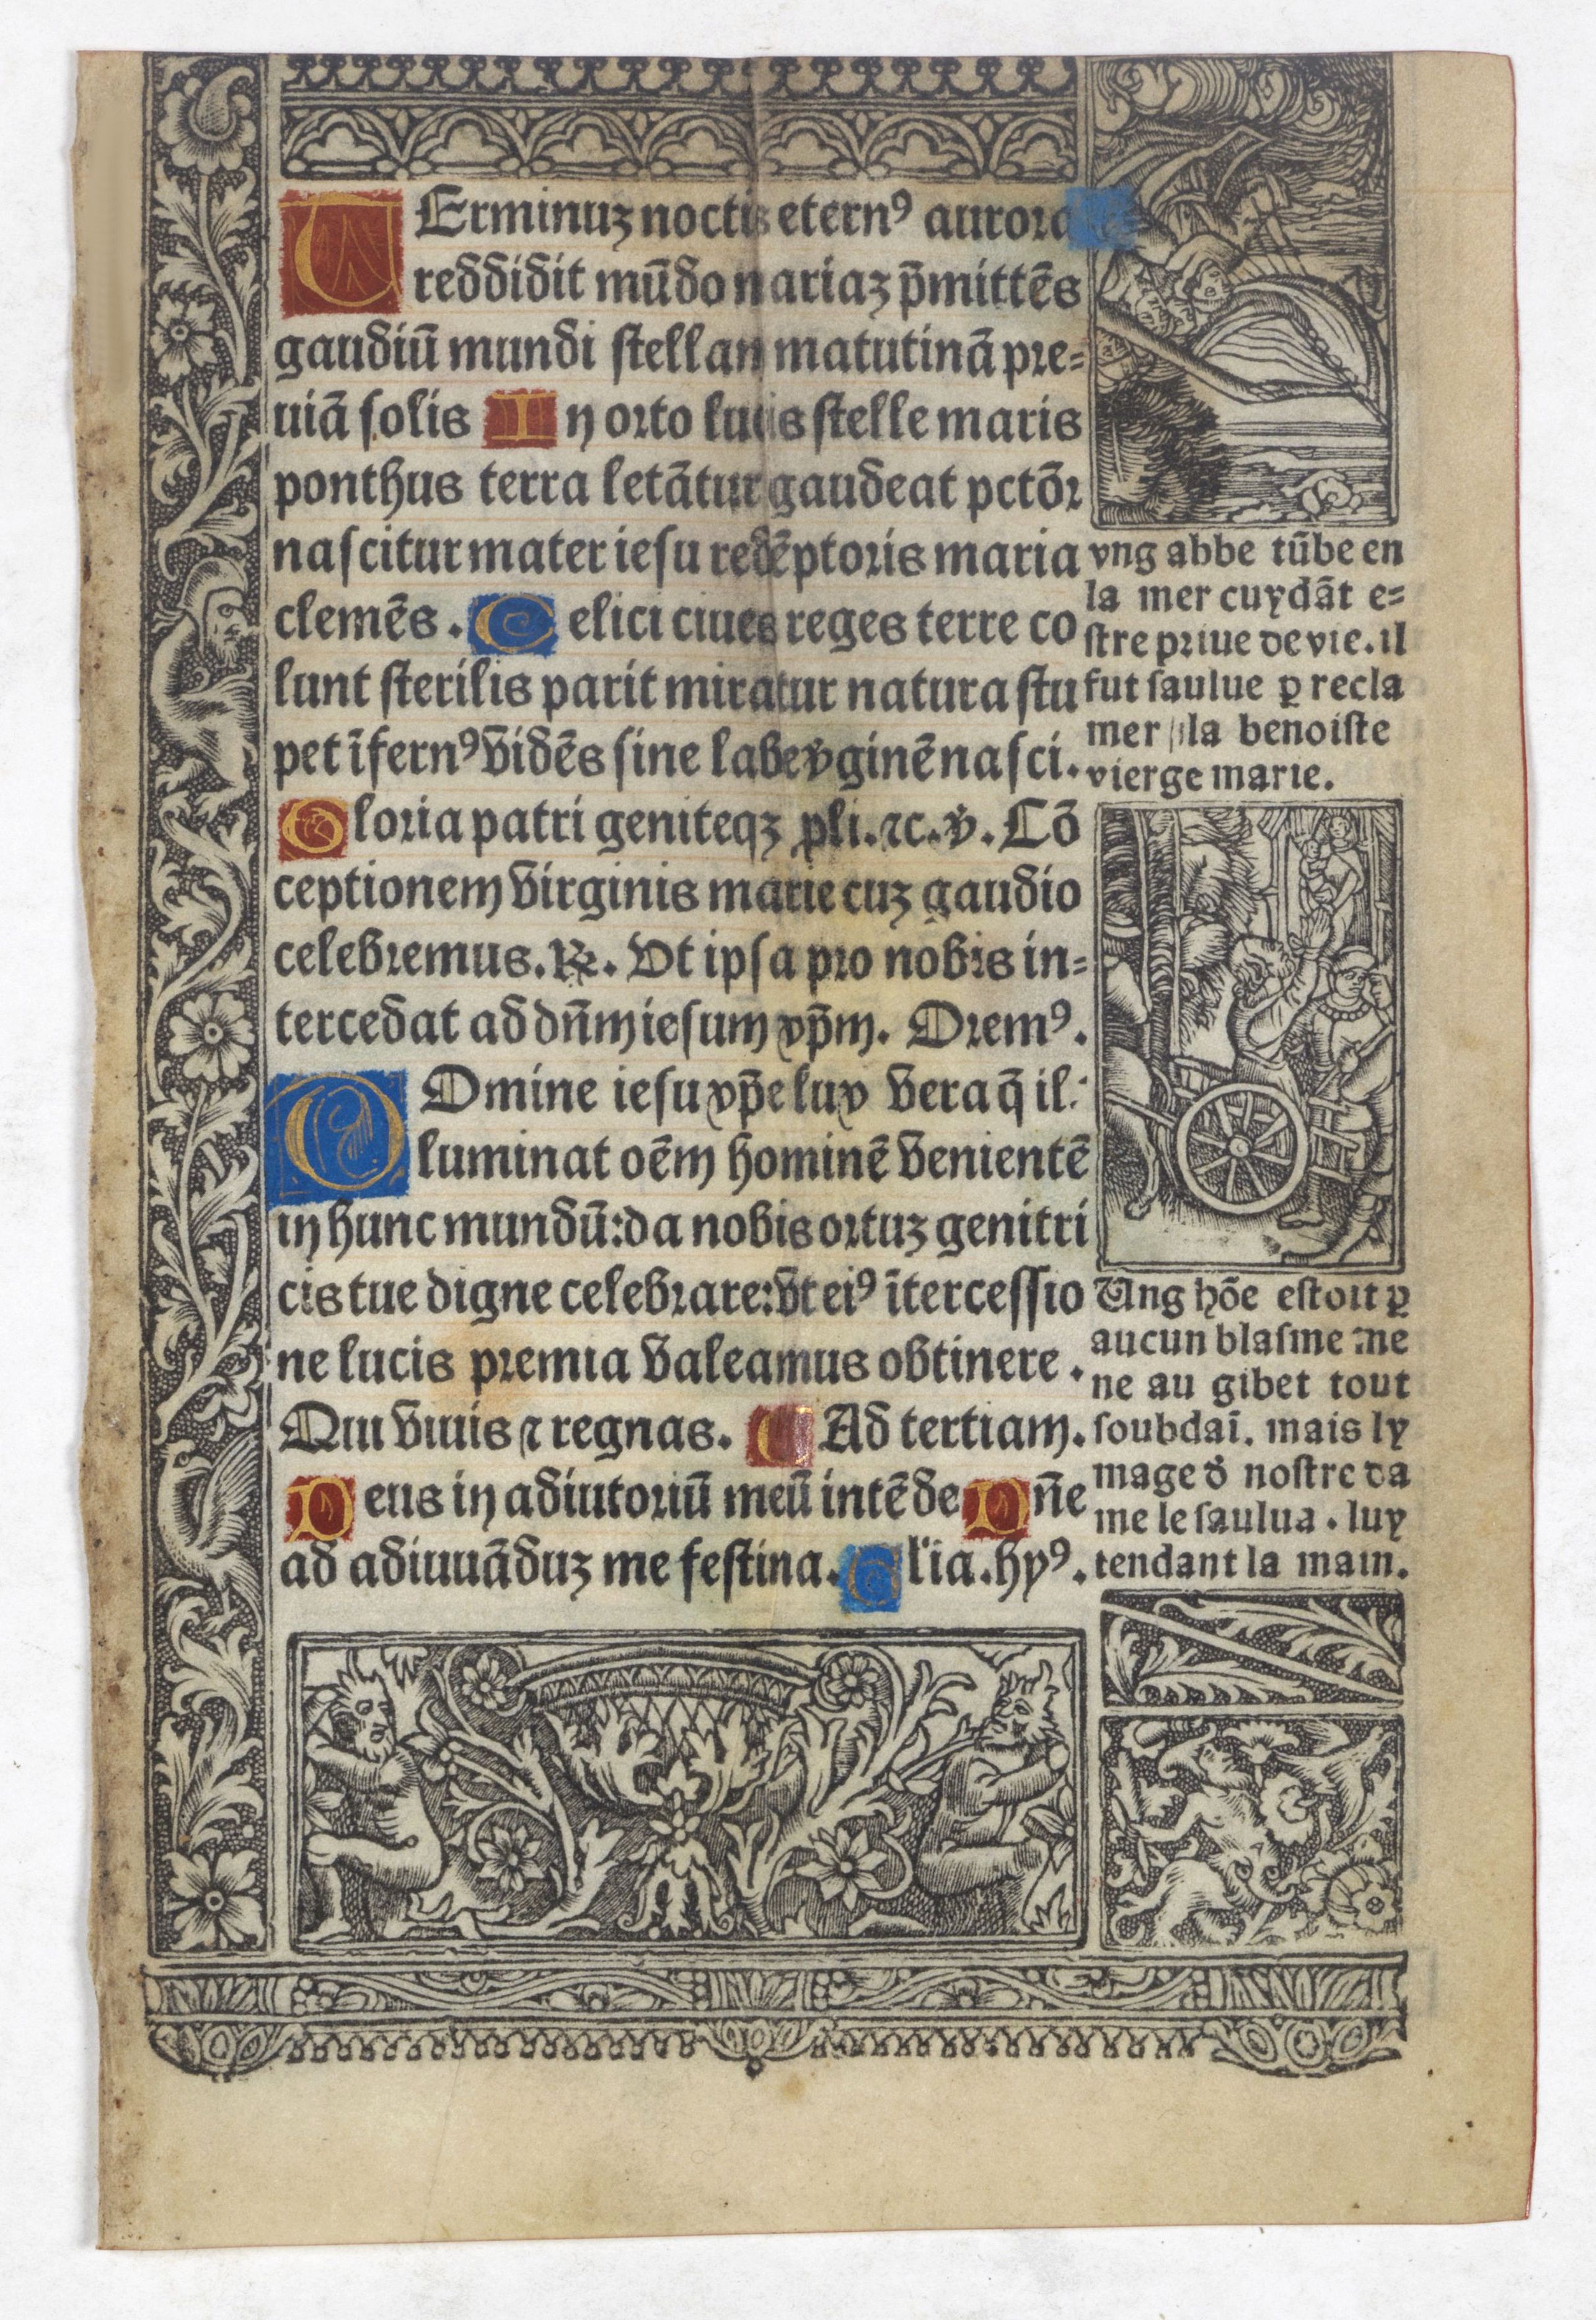 TErminuꝫ noctis eternꝰ aurora
reddidit mūdo mariaꝫ p̄mittēs
gaudiū mundi stellam matutinā pre=
uiā solis In orto lucis stelle maris
ponthus terra letātur gaudeat pctōꝛ
nascitur mater iesu redēptoris maria
clemēs. Celici ciues reges terre co
lunt sterilis parit miratur natura stu
pet īfernꝰ vidēs sine labe v̄ginē nasci.
Gloria patri geniteqꝫ ꝓli. ⁊c. ℣. Cō
ceptionem virginis marie cuꝫ gaudio
celebremus. ℟. Vt ipsa pro nobis in=
tercedat ad dn̄m iesum xp̄m. Oremꝰ.
DOmine iesu xp̄e lux vera q̄ il=
luminat oēm hominē venientē
in hunc mundū: da nobis ortuꝫ genitri
cis tue digne celebrare: vt eiꝰ ītercessio
ne lucis premia valeamus obtinere.
Qui viuis ⁊ regnas. Ad tertiam.
Deus in adiutoriū meū intēde Dn̄e
ad adiuuāduꝫ me festina. Gl'ia. hyꝰ.
vng abbe tūbe en
la mer cuydāt e=
stre priue de vie. il
fut saulue ꝑ recla
mer la benoiste
vierge marie.
Ung hōe estoit ꝑ
aucun blasme me
ne au gibet tout
soubdaī. mais ly
mage d̄ nostre da
me le saulua. luy
tendant la main.